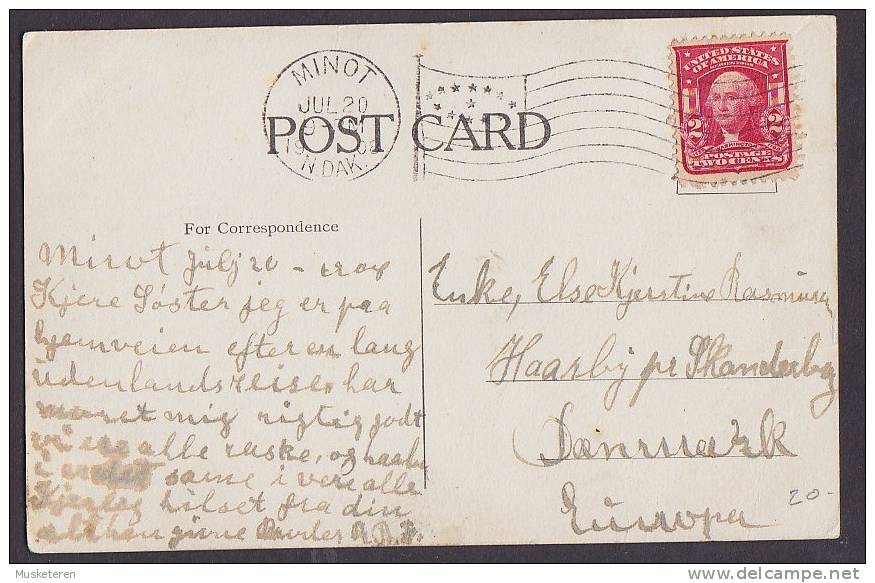 MINOT
JUL 20
N. DAK.
POST CARD
UNITED STATES
OF AMERICA
2 2
POSTAGE
TWO CENTS
For Correspondence
Minot July 20 -
Kjere Søster jeg er paa
hjemveien efter en lang
udenlandsreise, har
moret mig rigtig godt
vi ere alle raske, og haaber
i er det same i vere alle
Kjerlig hilset fra din
Enke, Else Kjerstine Rasmusen
Haarby pr Skanderborg
Danmark
Europa
20-
Musketeren
http://www.delcampe.net